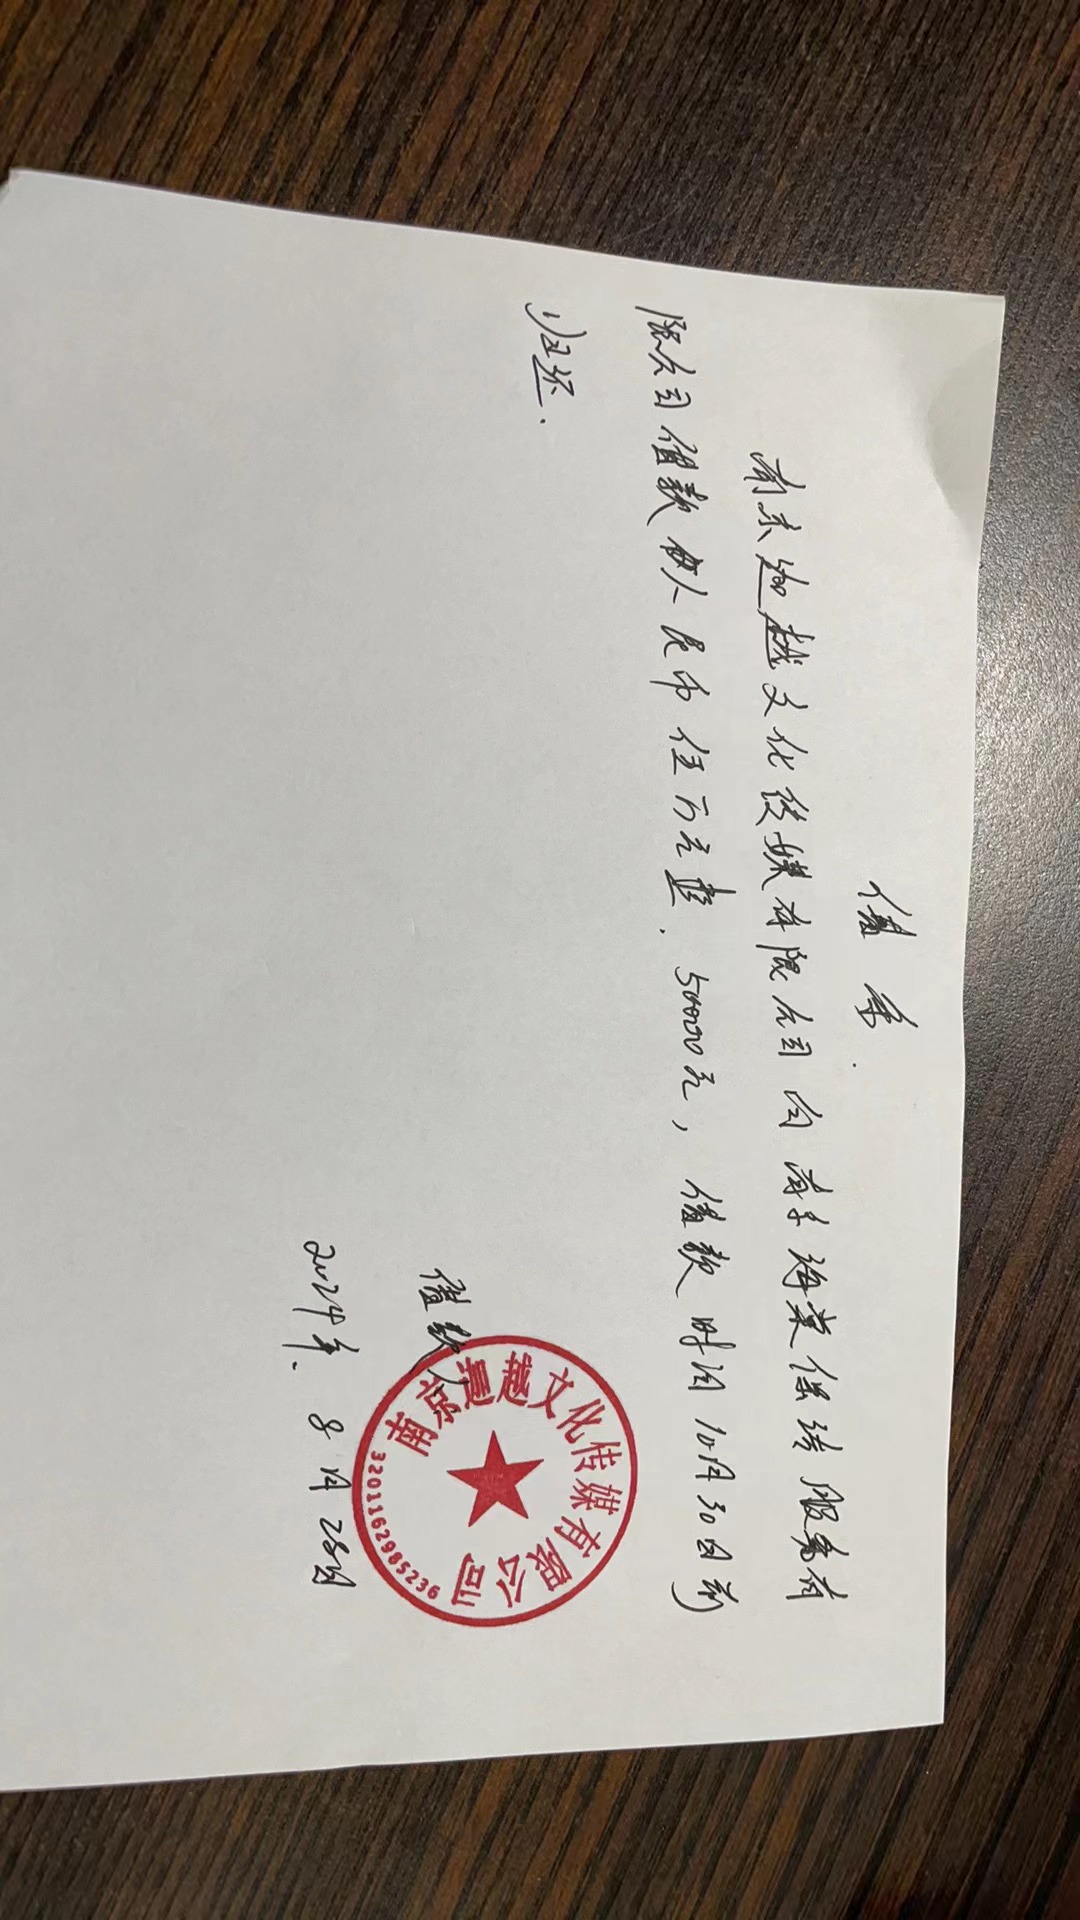 借条.
南京迦越文化传媒有限公司向南京海棠保洁服务有
限公司借款 人民币伍万元整. 50000元, 借款时间10月30日前
归还.
借款人
南京迦越文化传媒有限公司
3201162985236
2024年. 8月28日